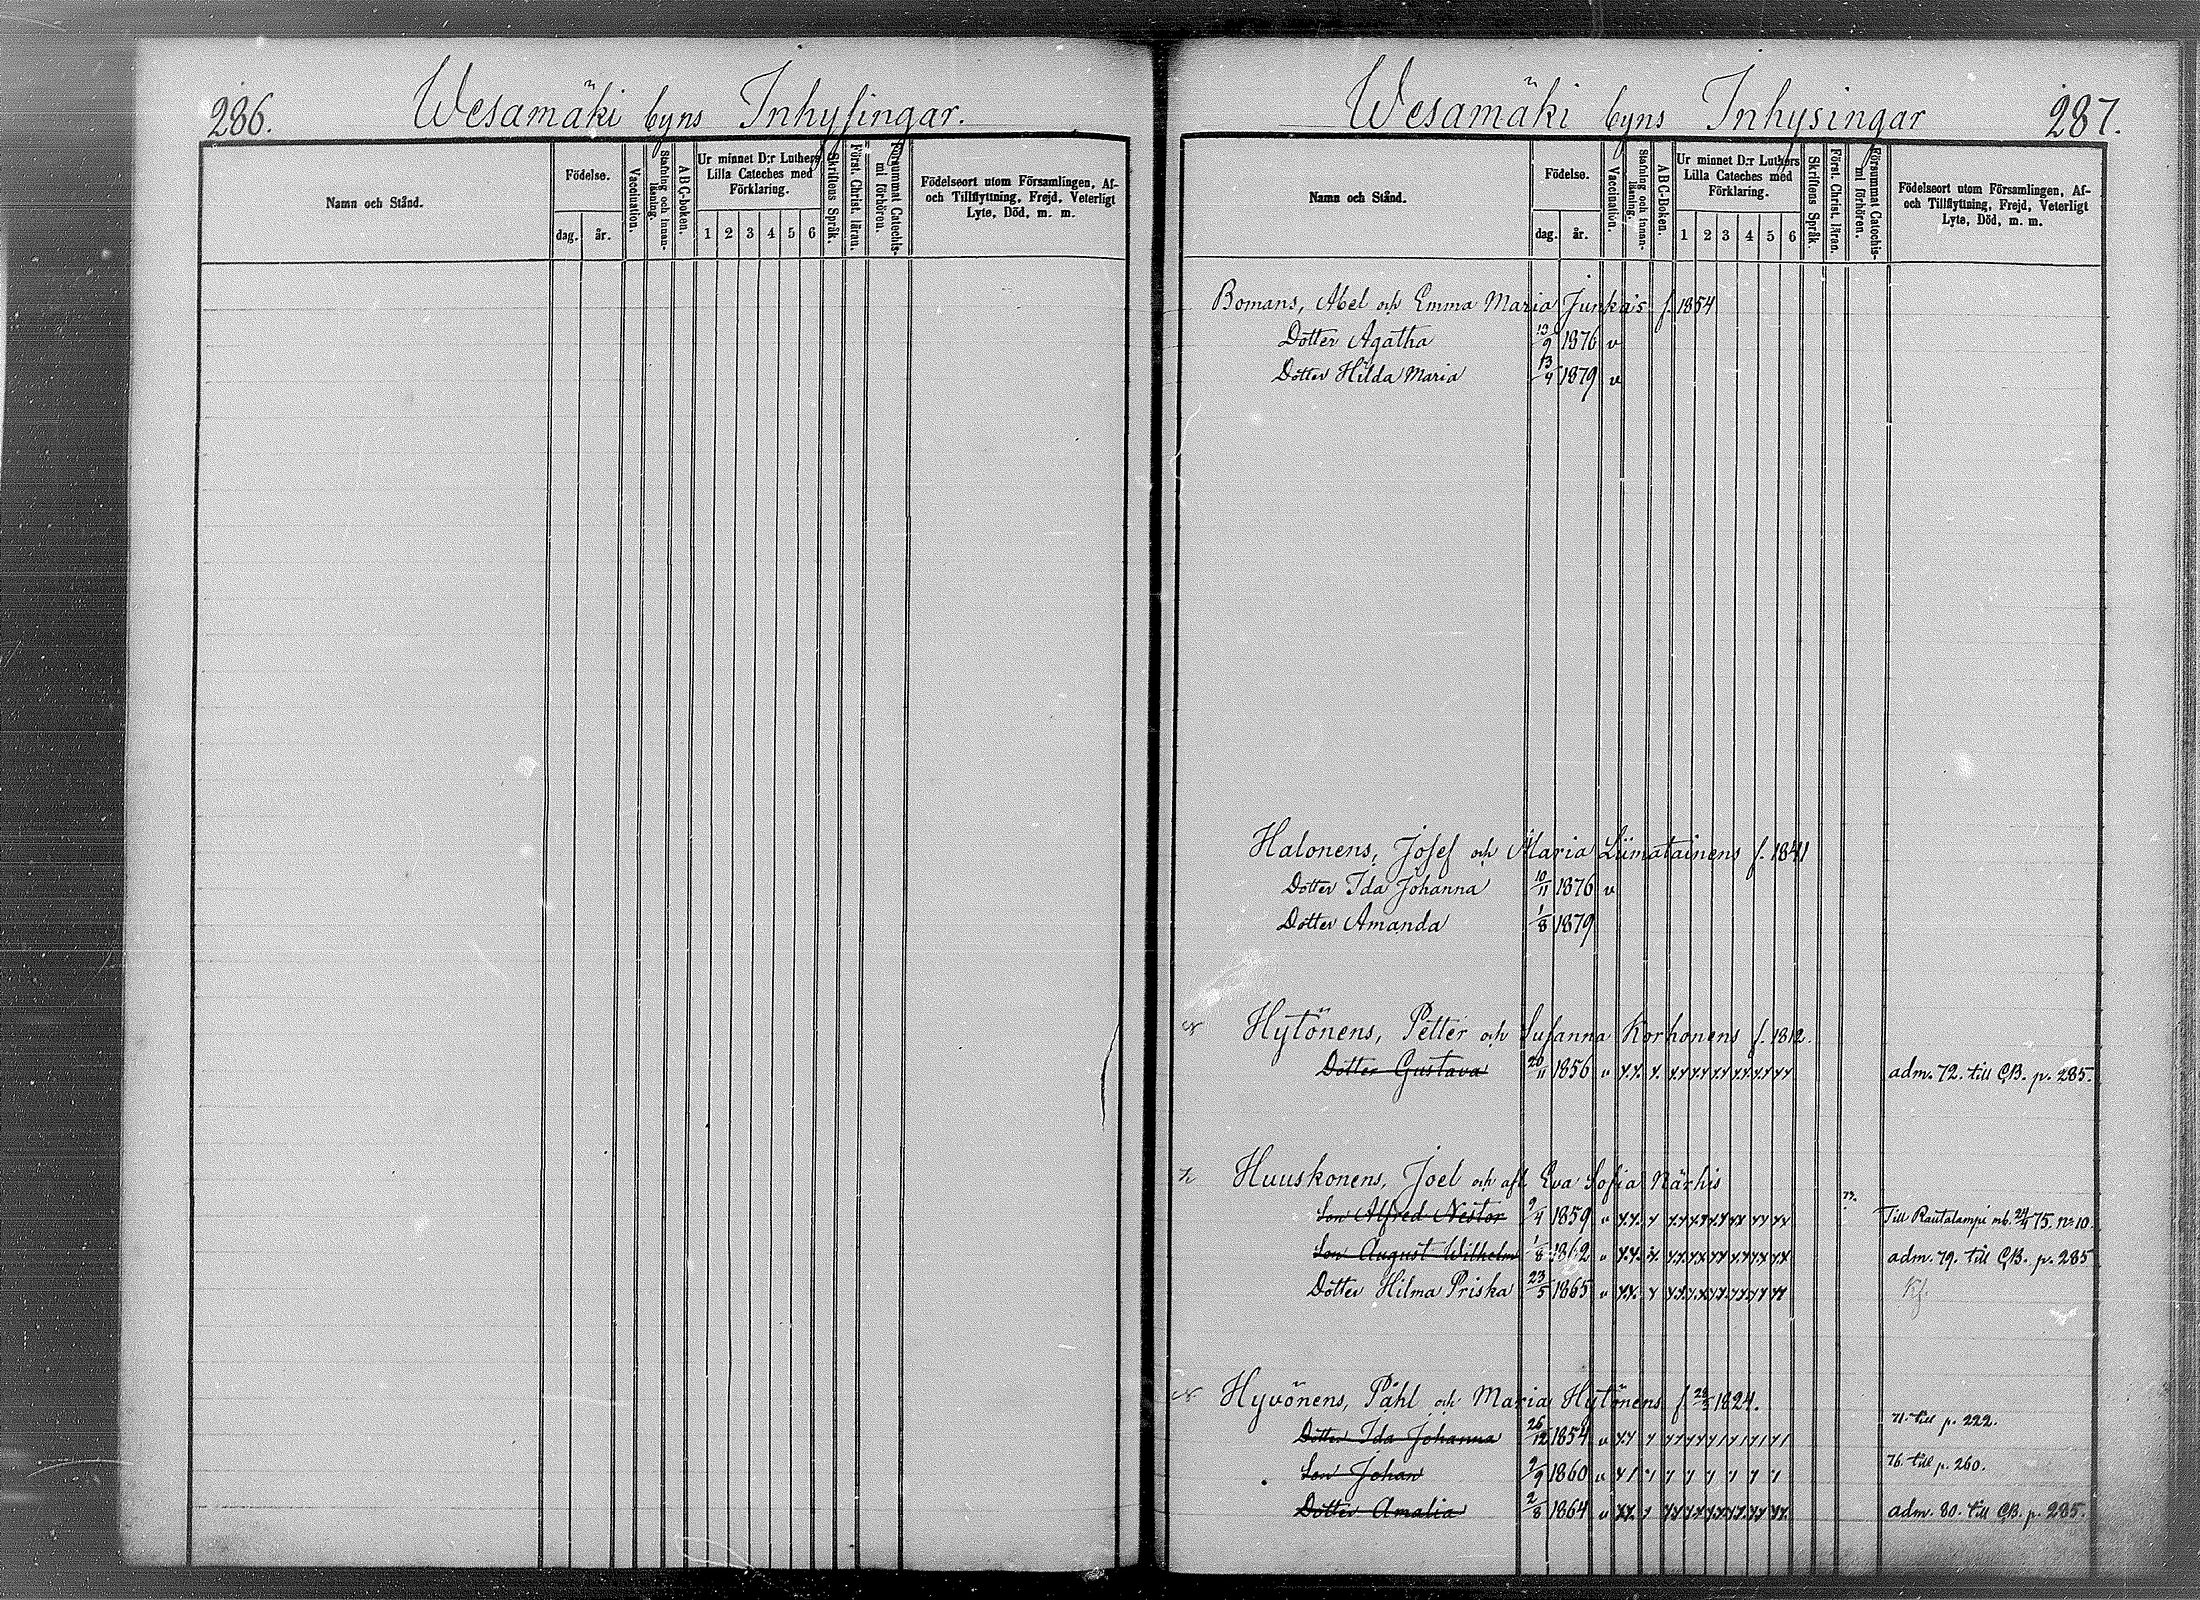 286.
Wesamäki byns Inhysingar.
Namn och Stånd.
Födelse.
dag.
år.
Vaccination.
Stafning och innan-läsning.
ABC-boken.
Ur minnet D:r Luthers
Lilla Cateches med
Förklaring.
1 2 3 4 5 6
Skriftens Språk.
Först. Christ. läran.
Försummat Catechis-
mi förhören.
Födelseort utom Församlingen, Af-
och Tillflyttning, Frejd, Veterligt
Lyte, Död, m. m.
Wesamäki byns Inhysingar
287.
Namn och Stånd.
Födelse.
dag.
år.
Vaccination.
Stafning och innan-
läsning.
ABC-Boken.
Ur minnet D:r Luthers
Lilla Cateches med
Förklaring.
1 2 3 4 5 6
Skriftens Språk.
Först. Christ. läran.
Försummat Catechis-
mi förhören.
Födelseort utom Församlingen, Af-
och Tillflyttning, Frejd, Veterligt
Lyte, Död, m. m.
Bomans, Abel och Emma Maria Junka's f. 1854
Dotter Agatha 13/9 1876 v
Dotter Hilda Maria 13/4 1879 v
Halonens, Josef och Maria Liimatainens f. 1841
Dotter Ida Johanna 10/11 1876 v
Dotter Amanda 1/8 1879
Hytönens, Petter och Susanna Korhonens f. 1812.
Dotter Gustava 20/11 1856 v adm. 72. till CB. p. 285.
Huuskonens, Joel och afl Eva Sofia Närhis
Son Alfred Nestor 9/4 1859 v 73. Till Rautalampi mb. 24/4 75. No 10.
Son August Wilhelm 1/8 1862 v adm. 79. till CB. p. 285
Dotter Hilma Priska 23/5 1865 v
Hyvönens, Påhl och Maria Hytönens f. 1824.
Dotter Ida Johanna 25/12 1854 v 71. till p. 222.
Son Johan 9/9 1860 v 76. till p. 260.
Dotter Amalia 2/8 1864 v adm. 80. till CB. p. 285.